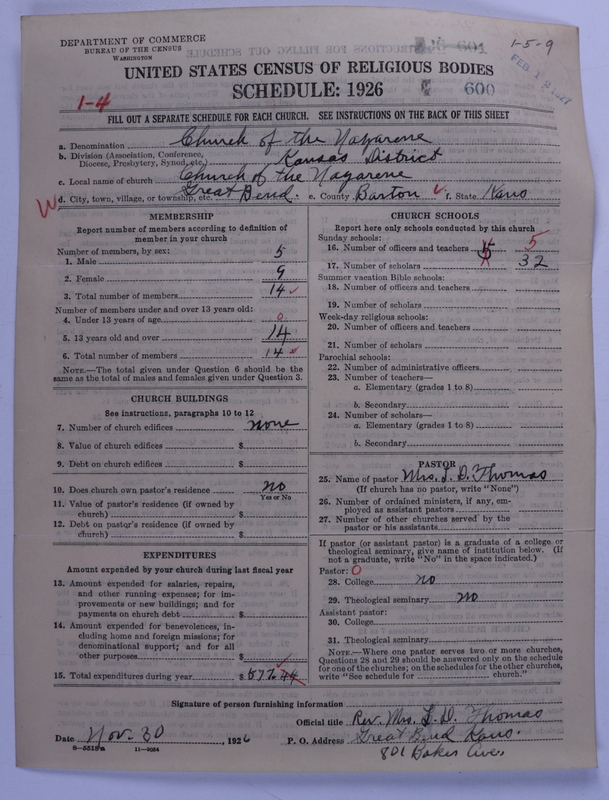 DEPARTMENT OF COMMERCE
BUREAU OF THE CENSUS
WASHINGTON
1-5-9
FEB 1 2 1927
UNITED STATES CENSUS OF RELIGIOUS BODIES
SCHEDULE: 1926
600
1-4
FILL OUT A SEPARATE SCHEDULE FOR EACH CHURCH. SEE INSTRUCTIONS ON THE BACK OF THIS SHEET
a. Denomination Church of the Nazarene
b. Division (Association, Conference, Diocese, Presbytery, Synod, etc.) Kansas District
c. Local name of church Church of the Nazarene
d. City, town, village, or township, etc. Great Bend. e. County Barton f. State Kans
MEMBERSHIP
Report number of members according to definition of
member in your church
Number of members, by sex:
1. Male 5
2. Female 9
3. Total number of members 14
Number of members under and over 13 years old:
4. Under 13 years of age 0
5. 13 years old and over 14
6. Total number of members 14
NOTE.—The total given under Question 6 should be
same as the total of males and females given under Question 3.
CHURCH BUILDINGS
See instructions, paragraphs 10 to 12
7. Number of church edifices none
8. Value of church edifices $
9. Debt on church edifices $
10. Does church own pastor's residence no
Yes or No
11. Value of pastor's residence (if owned by
church) $
12. Debt on pastor's residence (if owned by
church) $
EXPENDITURES
Amount expended by your church during last fiscal year
13. Amount expended for salaries, repairs,
and other running expenses; for im-
provements or new buildings; and for
payments on church debt $
14. Amount expended for benevolences, in-
cluding home and foreign missions; for
denominational support; and for all
other purposes $
15. Total expenditures during year $ 577.44
CHURCH SCHOOLS
Report here only schools conducted by this church
Sunday schools:
16. Number of officers and teachers 5
17. Number of scholars 32
Summer vacation Bible schools:
18. Number of officers and teachers
19. Number of scholars
Week-day religious schools:
20. Number of officers and teachers
21. Number of scholars
Parochial schools:
22. Number of administrative officers
23. Number of teachers—
a. Elementary (grades 1 to 8)
b. Secondary
24. Number of scholars—
a. Elementary (grades 1 to 8)
b. Secondary
PASTOR
25. Name of pastor Mrs. L. D. Thomas
(If church has no pastor, write "None")
26. Number of ordained ministers, if any, em-
ployed as assistant pastors
27. Number of other churches served by the
pastor or his assistants
If pastor (or assistant pastor) is a graduate of a college or
theological seminary, give name of institution below. (If
not a graduate, write "No" in the space indicated.)
Pastor: 0
28. College no
29. Theological seminary no
Assistant pastor:
30. College
31. Theological seminary
NOTE.—Where one pastor serves two or more churches,
Questions 28 and 29 should be answered only on the schedule
for one of the churches; on the schedules for the other churches,
write "See schedule for church."
Signature of person furnishing information
Official title Rev. Mrs. L. D. Thomas
Date Nov. 30, 1926 P. O. Address Great Bend Kans.
8-5518a 11-9034
801 Baker Ave.